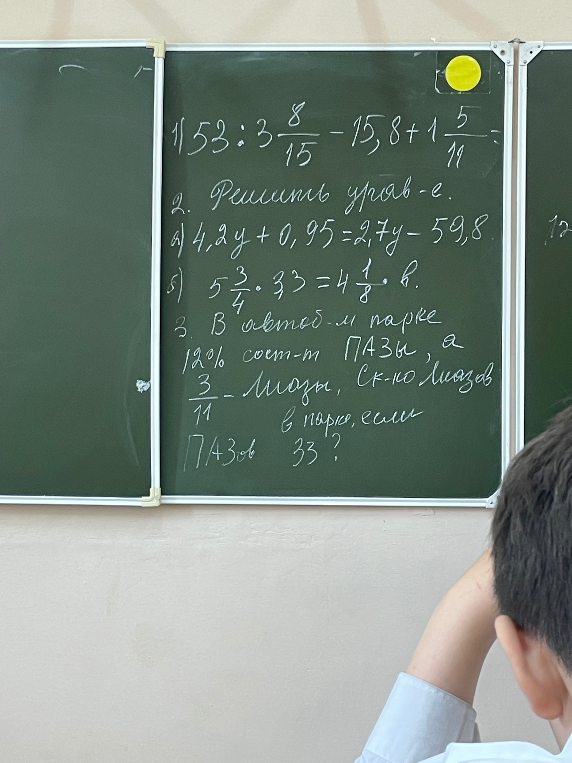 1) 53 : 3 8/15 - 15,8 + 1 5/11 =
2. Решить урав-е.
а) 4,2у + 0,95 = 2,7у - 59,8
б) 5 3/4 · 3,3 = 4 1/8 · в.
3. В автоб-м парке
12% сост-т ПАЗы, а
3/11 - Лиазы. Ск-ко Лиазов
в парке, если
ПАЗов 33?
12